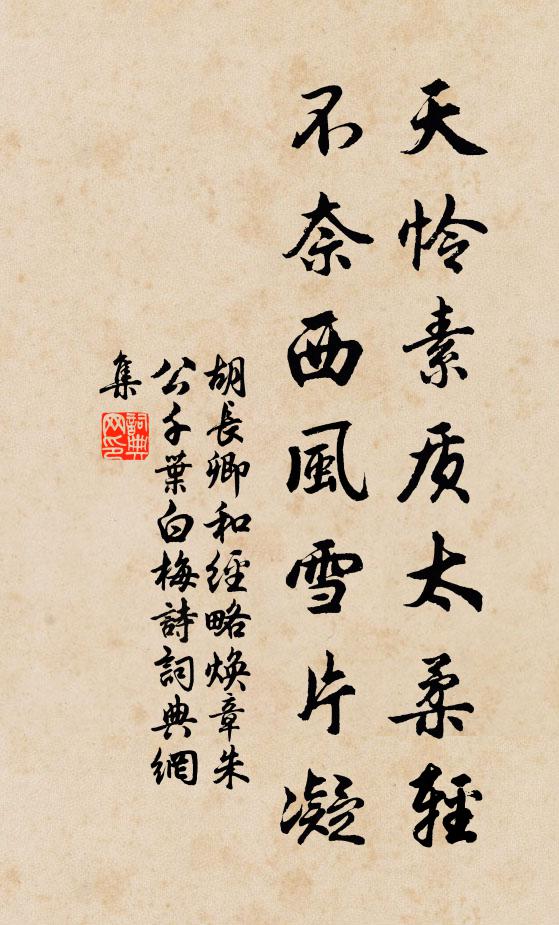 天怜素质太柔輕
不奈西風雪片凝
胡長卿和經略焕章朱
公千葉白梅詩詞典網
集
詞典
网印